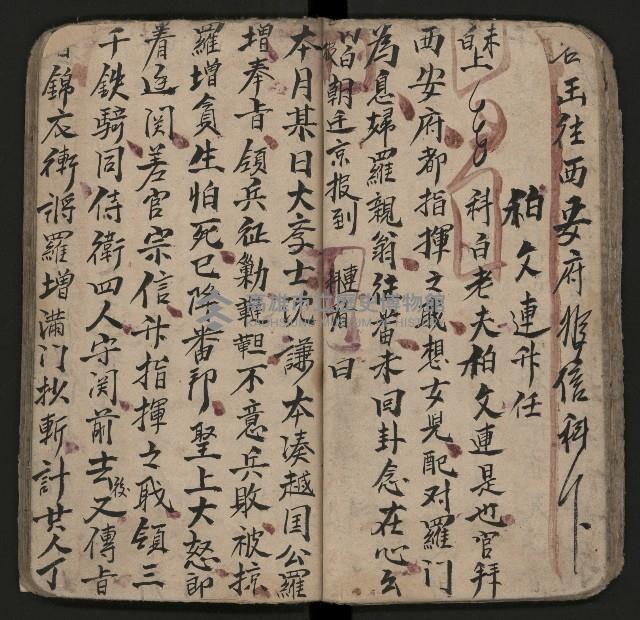 玉往西安府指信科下
柏文連升任
末上 科白老夫柏文連是也官拜
白
西安府都指揮之職想女兒配对羅门
為息婦羅親翁往番未回卦念在心
白 朝廷京报到 連看曰
本月某日大孝士沈謙本湊越国公羅
增奉旨領兵征勦韃靼不意兵敗被掠
羅增貪生怕死已降番邦聖上大怒即
着边関差官宗信升指揮之職領三
千鉄騎同侍衛四人守関前去後又傳旨
錦衣衛將羅增滿门抄斬計共人丁
高雄市立歷史博物館
KAOHSIUNG MUSEUM OF HISTORY